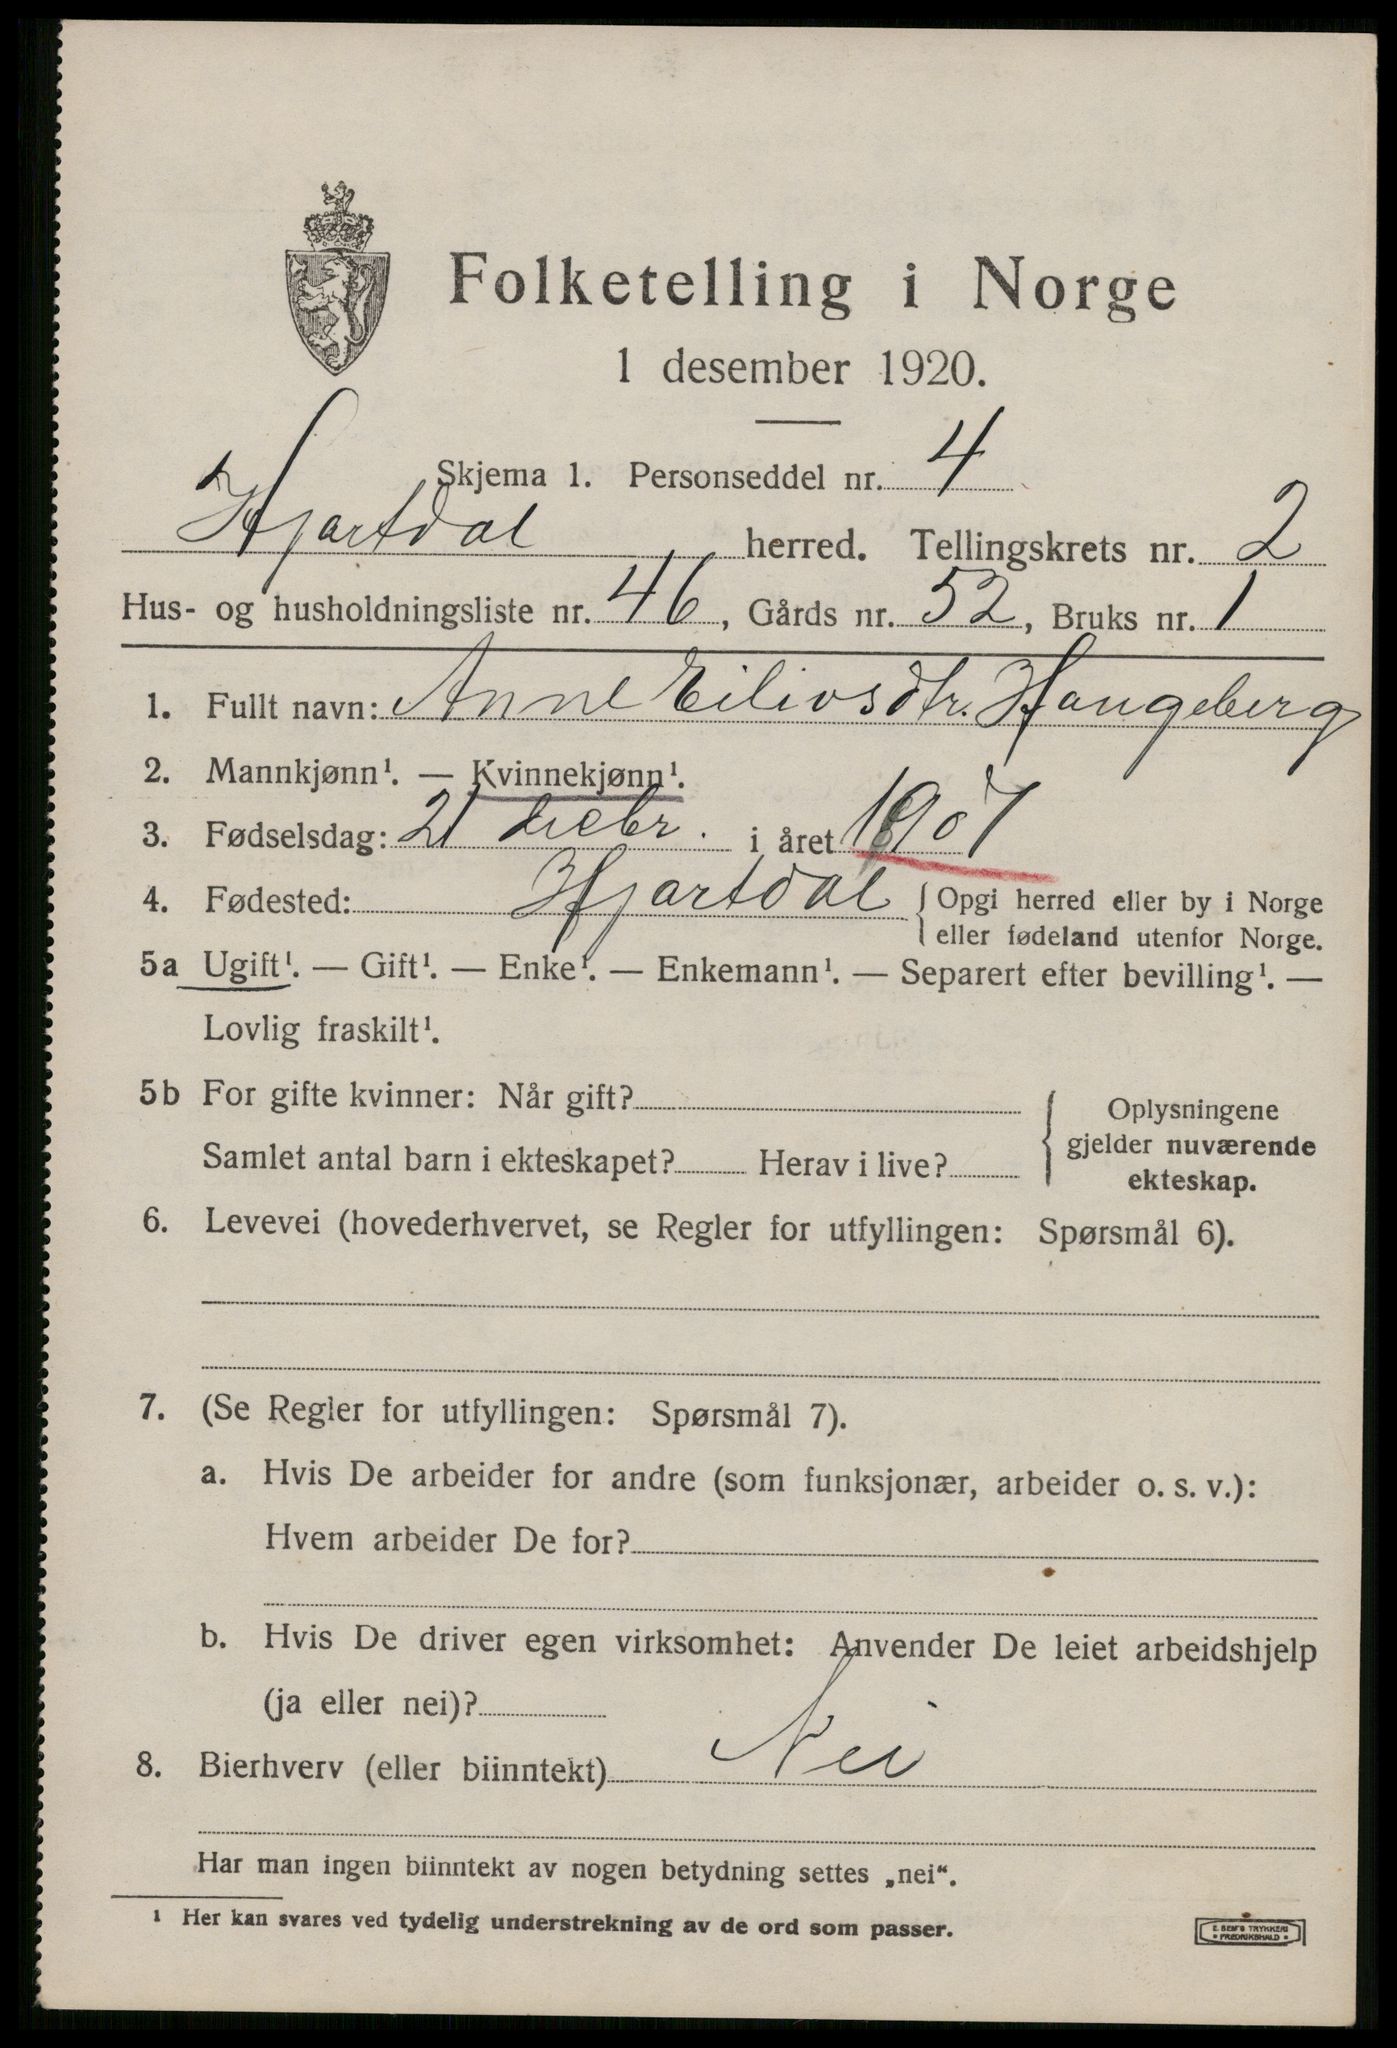 Folketelling i Norge
1 desember 1920.
Skjema 1. Personseddel nr. 4
Hjartdal herred. Tellingskrets nr. 2
Hus- og husholdningsliste nr. 46, Gårds nr. 52, Bruks nr. 1
1. Fullt navn: Anne Eilivsdtr. Haugeberg
2. Mannkjønn¹. — Kvinnekjønn¹.
3. Fødselsdag: 21 decbr. i året 1907
4. Fødested: Hjartdal { Opgi herred eller by i Norge
eller fødeland utenfor Norge.
5a Ugift¹. — Gift¹. — Enke¹. — Enkemann¹. — Separert efter bevilling¹. —
Lovlig fraskilt¹.
5b For gifte kvinner: Når gift?
Samlet antal barn i ekteskapet? Herav i live?
Oplysningene
gjelder nuværende
ekteskap.
6. Levevei (hovederhvervet, se Regler for utfyllingen: Spørsmål 6).
7. (Se Regler for utfyllingen: Spørsmål 7).
a. Hvis De arbeider for andre (som funksjonær, arbeider o. s. v.):
Hvem arbeider De for?
b. Hvis De driver egen virksomhet: Anvender De leiet arbeidshjelp
(ja eller nei)?
8. Bierhverv (eller biinntekt) Nei
Har man ingen biinntekt av nogen betydning settes „nei“.
¹ Her kan svares ved tydelig understrekning av de ord som passer.
E. SEM'S TRYKKERI
• FREDRIKSHALD •